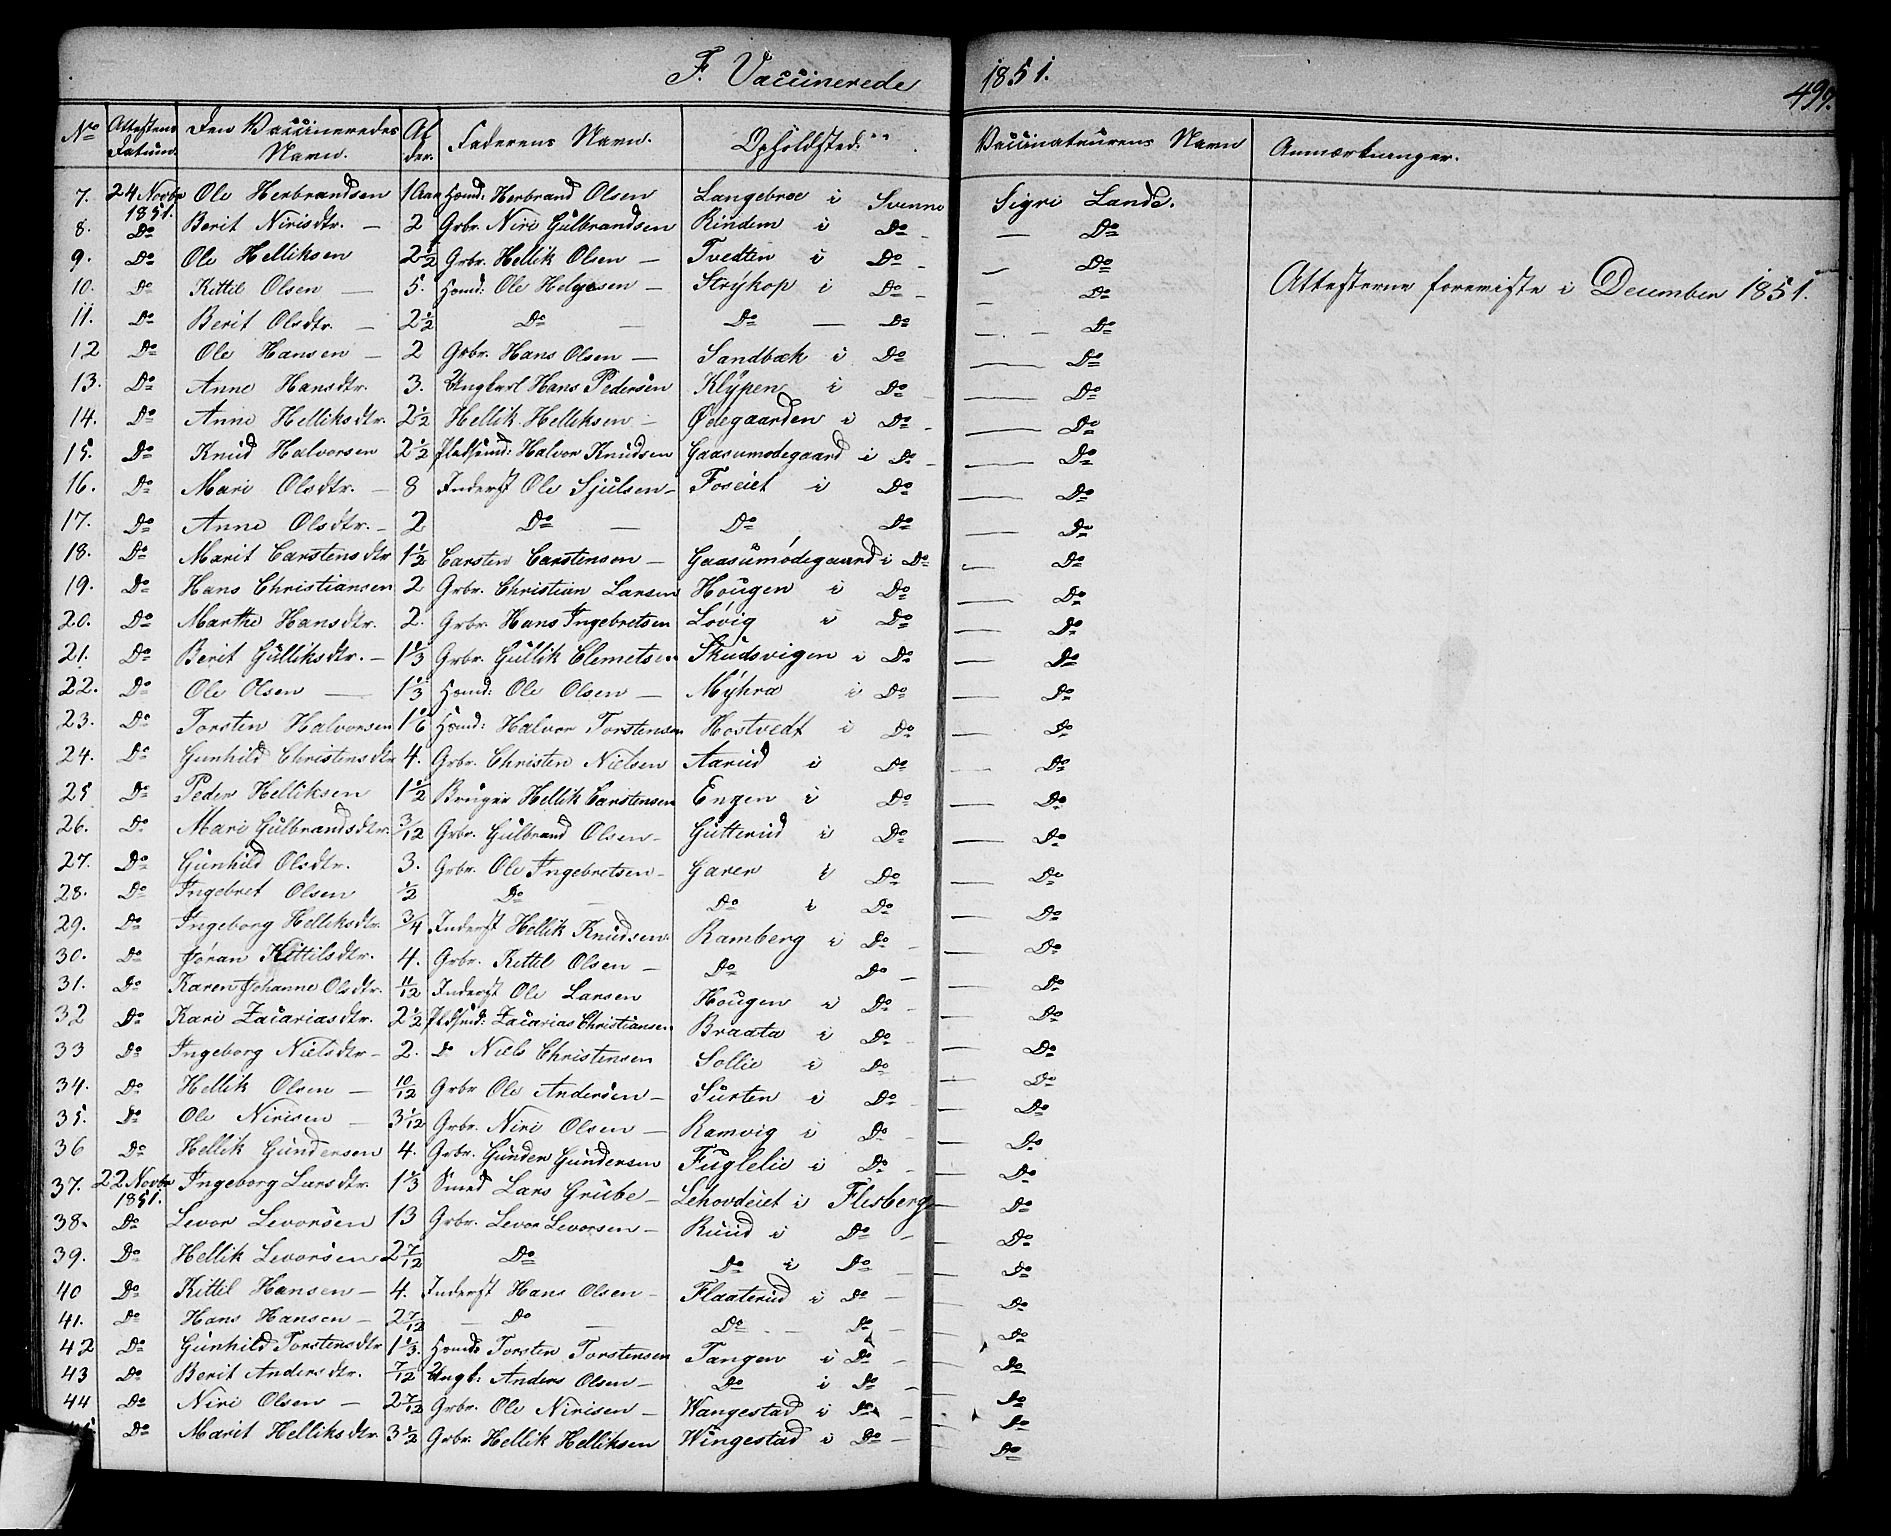 F. Vaccinerede 1851. 499.
No Attestens Datum. Den Vaccineredes Navn. Alder. Faderens Navn. Opholdsted. Vaccinateurens Navn Anmærkninger.
7. 24 Novbr 1851. Ole Herbrandsen 1 Aar Hœmd: Herbrand Olsen Langebroe i Svenne Sigri Lande.
8. Do Berit Nirisdtr. — 2 Grbr. Niri Gulbrandsen Rindem i Do — Do
9. Do Ole Helliksen 2 1/2 Grbr. Hellik Olsen — Tvedten i Do — Do
10. Do Kittil Olsen — 5. Hœmd: Ole Helgesen — Strykop i Do — Do
Attesterne foreviste i December 1851.
11. Do Berit Olsdtr. — 2 1/2 Do — Do — Do — Do
12 Do Ole Hansen — 2 Grbr. Hans Olsen — Sandbæk i Do — Do
13. Do Anne Hansdtr. 3. Ungkarl Hans Pedersen Klypen i Do — Do
14. Do Anne Helliksdtr. 2 1/2 Hellik Helliksen — Ødegaarden i Do — Do
15. Do Knud Halvorsen 2 1/2 Pladsmd: Halvor Knudsen Gaasumodegaard i Do — Do
16. Do Mari Olsdtr. — 8 Inderst Ole Sjulsen — Foseiet i Do — Do
17. Do Anne Olsdtr. — 2 Do — Do Do — Do
18. Do Marit Carstensdtr 1 1/2 Carsten Carstensen — Gaasumødegaard i Do — Do
19. Do Hans Christiansen 2 Grbr. Christian Larsen Hougen i Do — Do
20. Do Marthe Hansdtr. 2. Grbr. Hans Ingebretsen Løvig i Do — Do
21. Do Berit Gulliksdtr. — 1 1/3 Grbr. Gullik Clemetsen Skudsvigen i Do — Do
22. Do Ole Olsen — 1 1/3 Hœmd: Ole Olsen — Myhra i Do — Do
23. Do Torsten Halvorsen 1 1/6 Hœmd: Halvor Torstensen Hostvedt i Do — Do
24. Do Gunhild Christensdtr 4. Grbr. Christen Nielsen Aarud i Do — Do
25 Do Peder Helliksen 1 1/2 Bruger Hellik Carstensen Engen i Do — Do
26. Do Mari Gulbrandsdtr. 3/12 Grbr. Gulbrand Olsen — Gutterud i Do — Do
27. Do Gunhild Olsdtr. 3. Grbr. Ole Ingebretsen — Garen i Do — Do
28. Do Ingebret Olsen 1/2 Do — Do i Do — Do
29. Do Ingeborg Helliksdtr. 3/4 Inderst Hellik Knudsen. Ramberg i Do — Do
30. Do Jøran Kittilsdtr. 4. Grbr. Kittel Olsen — Do Do — Do
31. Do Karen Johanne Olsdtr. 11/12 Inderst Ole Larsen Hougen i Do — Do
32 Do Kari Zacariasdtr. 2 1/2 Pladsmd: Zacarias Christiansen Braata i Do — Do
33 Do Ingeborg Nielsdtr — 2. Do Niels Christensen Sollie i Do — Do
34. Do Hellik Olsen — 10/12 Grbr Ole Andersen — Susten i Do — Do
35. Do Ole Nirisen — 3 1/12 Grbr. Niri Olsen — Ramvig i Do — Do
36 Do Hellik Gundersen 4. Grbr. Gunder Gundersen Fuglelie i Do — Do
37. 22 Novbr 1851. Ingeborg Larsdtr. 1 1/3 Smed Lars Grube — Lehovdeiet i Flesberg — Do
38. Do Levor Levorsen 13 Grbr. Levor Levorsen — Ruud i Do — Do
39. Do Hellik Levorsen 2 7/12 Do Do i Do — Do
40 Do Kittil Hansen — 4. Inderst Hans Olsen — Flaaterud i Do — Do
41. Do Hans Hansen — 2 7/12 — Do — Do — Do — Do
42 Do Gunhild Torstensdtr 1 1/3. Hœmd: Torsten Torstensen Tangen i Do — Do
43 Do Berit Andersdtr. 7/12 Ungk: Anders Olsen — Do i Do — Do
44 Do Niri Olsen — 2 7/12 Grbr. Ole Nirisen — Wangestad i Do — Do
Do Marit Helliksdtr 3 1/2 Grbr. Hellik Helliksen Wingestad i Do — Do